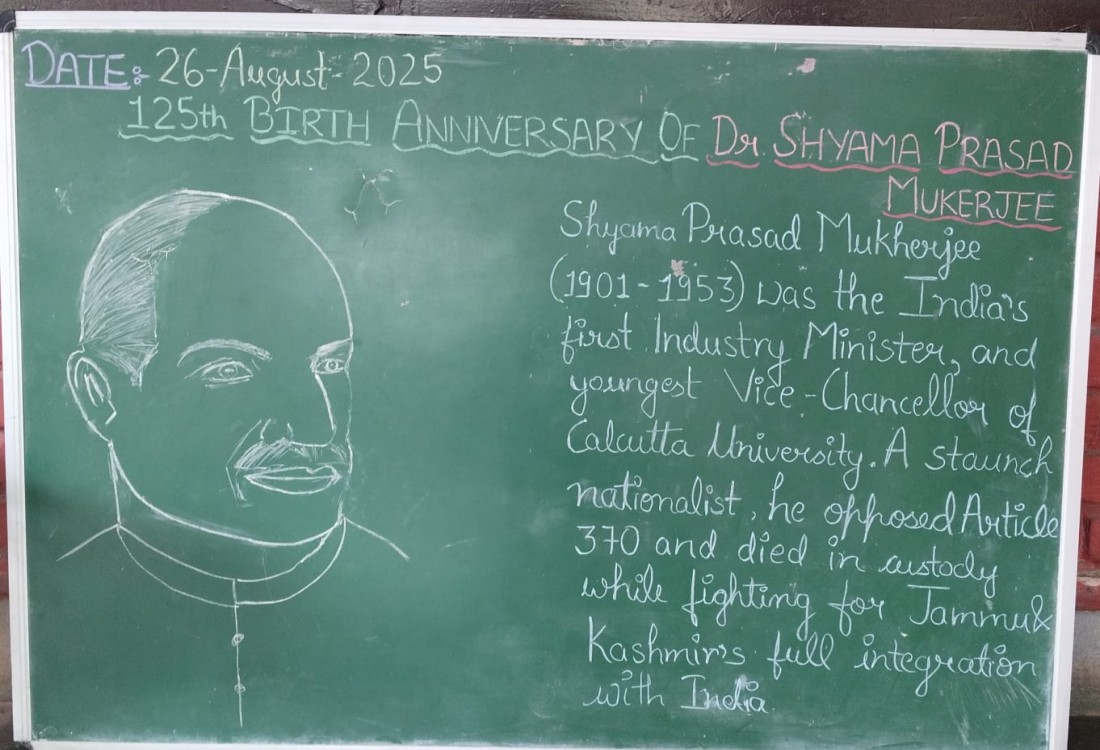 DATE:- 26-August-2025
125th BIRTH ANNIVERSARY OF Dr SHYAMA PRASAD
MUKERJEE
Shyama Prasad Mukherjee
(1901-1953) was the India's
first Industry Minister, and
youngest Vice-Chancellor of
Calcutta University. A staunch
nationalist, he opposed Article
370 and died in custody
while fighting for Jammu &
Kashmir's full integration
with India.